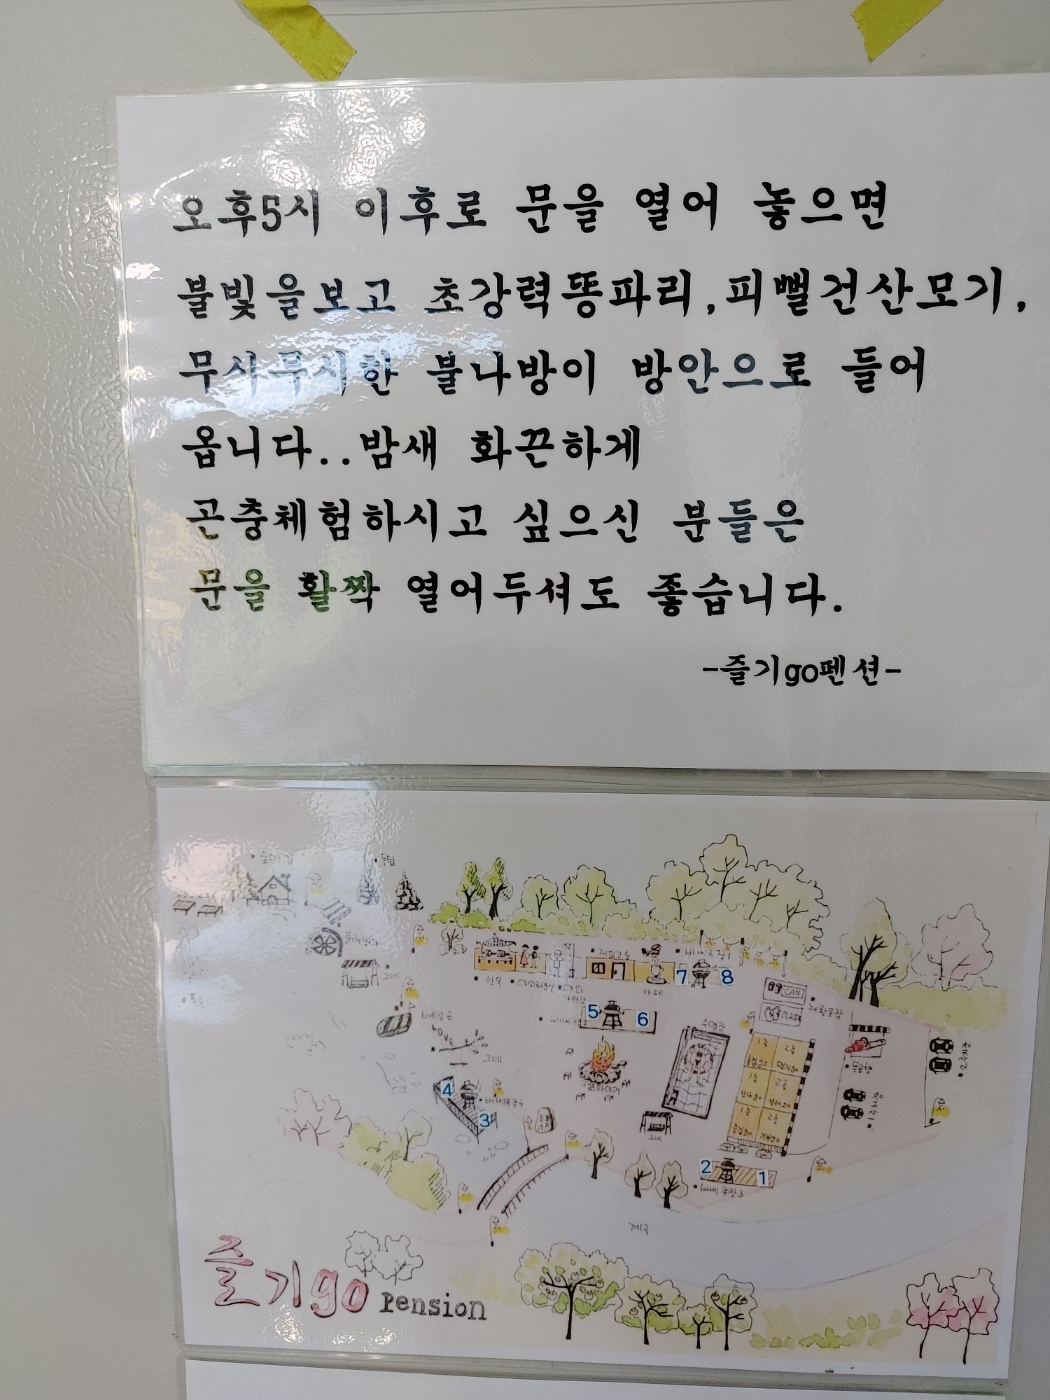 오후5시 이후로 문을 열어 놓으면
불빛을보고 초강력똥파리,피뻘건산모기,
무시무시한 불나방이 방안으로 들어
옵니다..밤새 화끈하게
곤충체험하시고 싶으신 분들은
문을 활짝 열어두셔도 좋습니다.
-즐기go펜션-
7 8
5 6
수영장
4
그네
3
그네
2 1
계곡
즐기go Pension